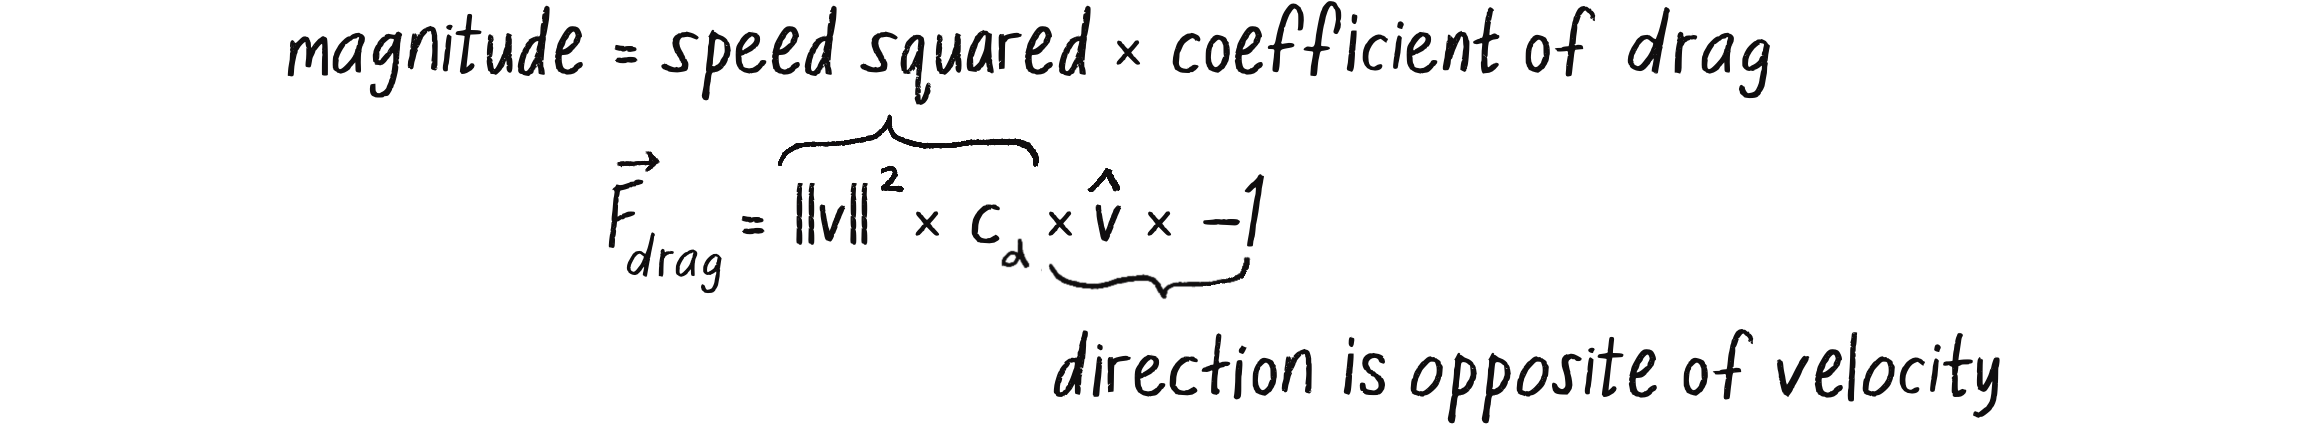 magnitude = speed squared × coefficient of drag
F⃗drag = ||v||² × cd × v̂ × -1
direction is opposite of velocity